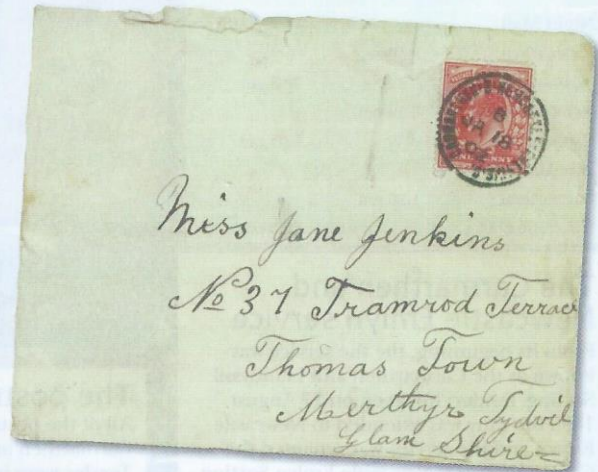 Miss Jane Jenkins
No 37 Tramrod Terrace
Thomas Town
Merthyr Tydvil
Glam Shire
JA 18